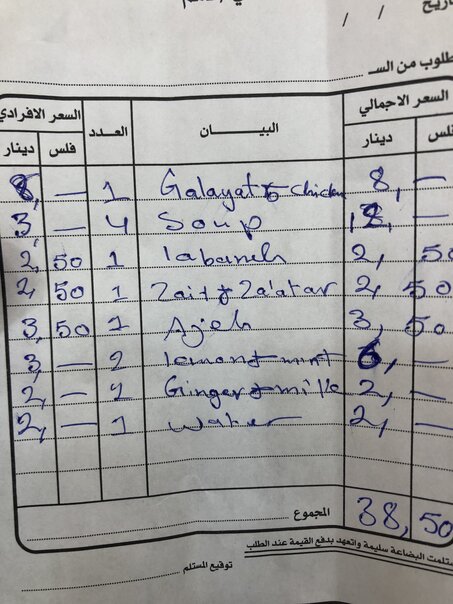 التاريخ / /
المطلوب من الســ
السعر الافرادي العدد البيـــان السعر الاجمالي
دينار فلس دينار فلس
8, — 1 Galayat & chicken 8, —
3, — 4 Soup 12, —
2, 50 1 labaneh 2, 50
2, 50 1 Zait & Za'atar 2, 50
3, 50 1 Ajeh 3, 50
3, — 2 lemond + mint 6, —
2, — 1 Ginger + milk 2, —
2, — 1 water 2, —
المجموع 38, 50
استلمت البضاعة سليمة واتعهد بدفع القيمة عند الطلب
توقيع المستلم